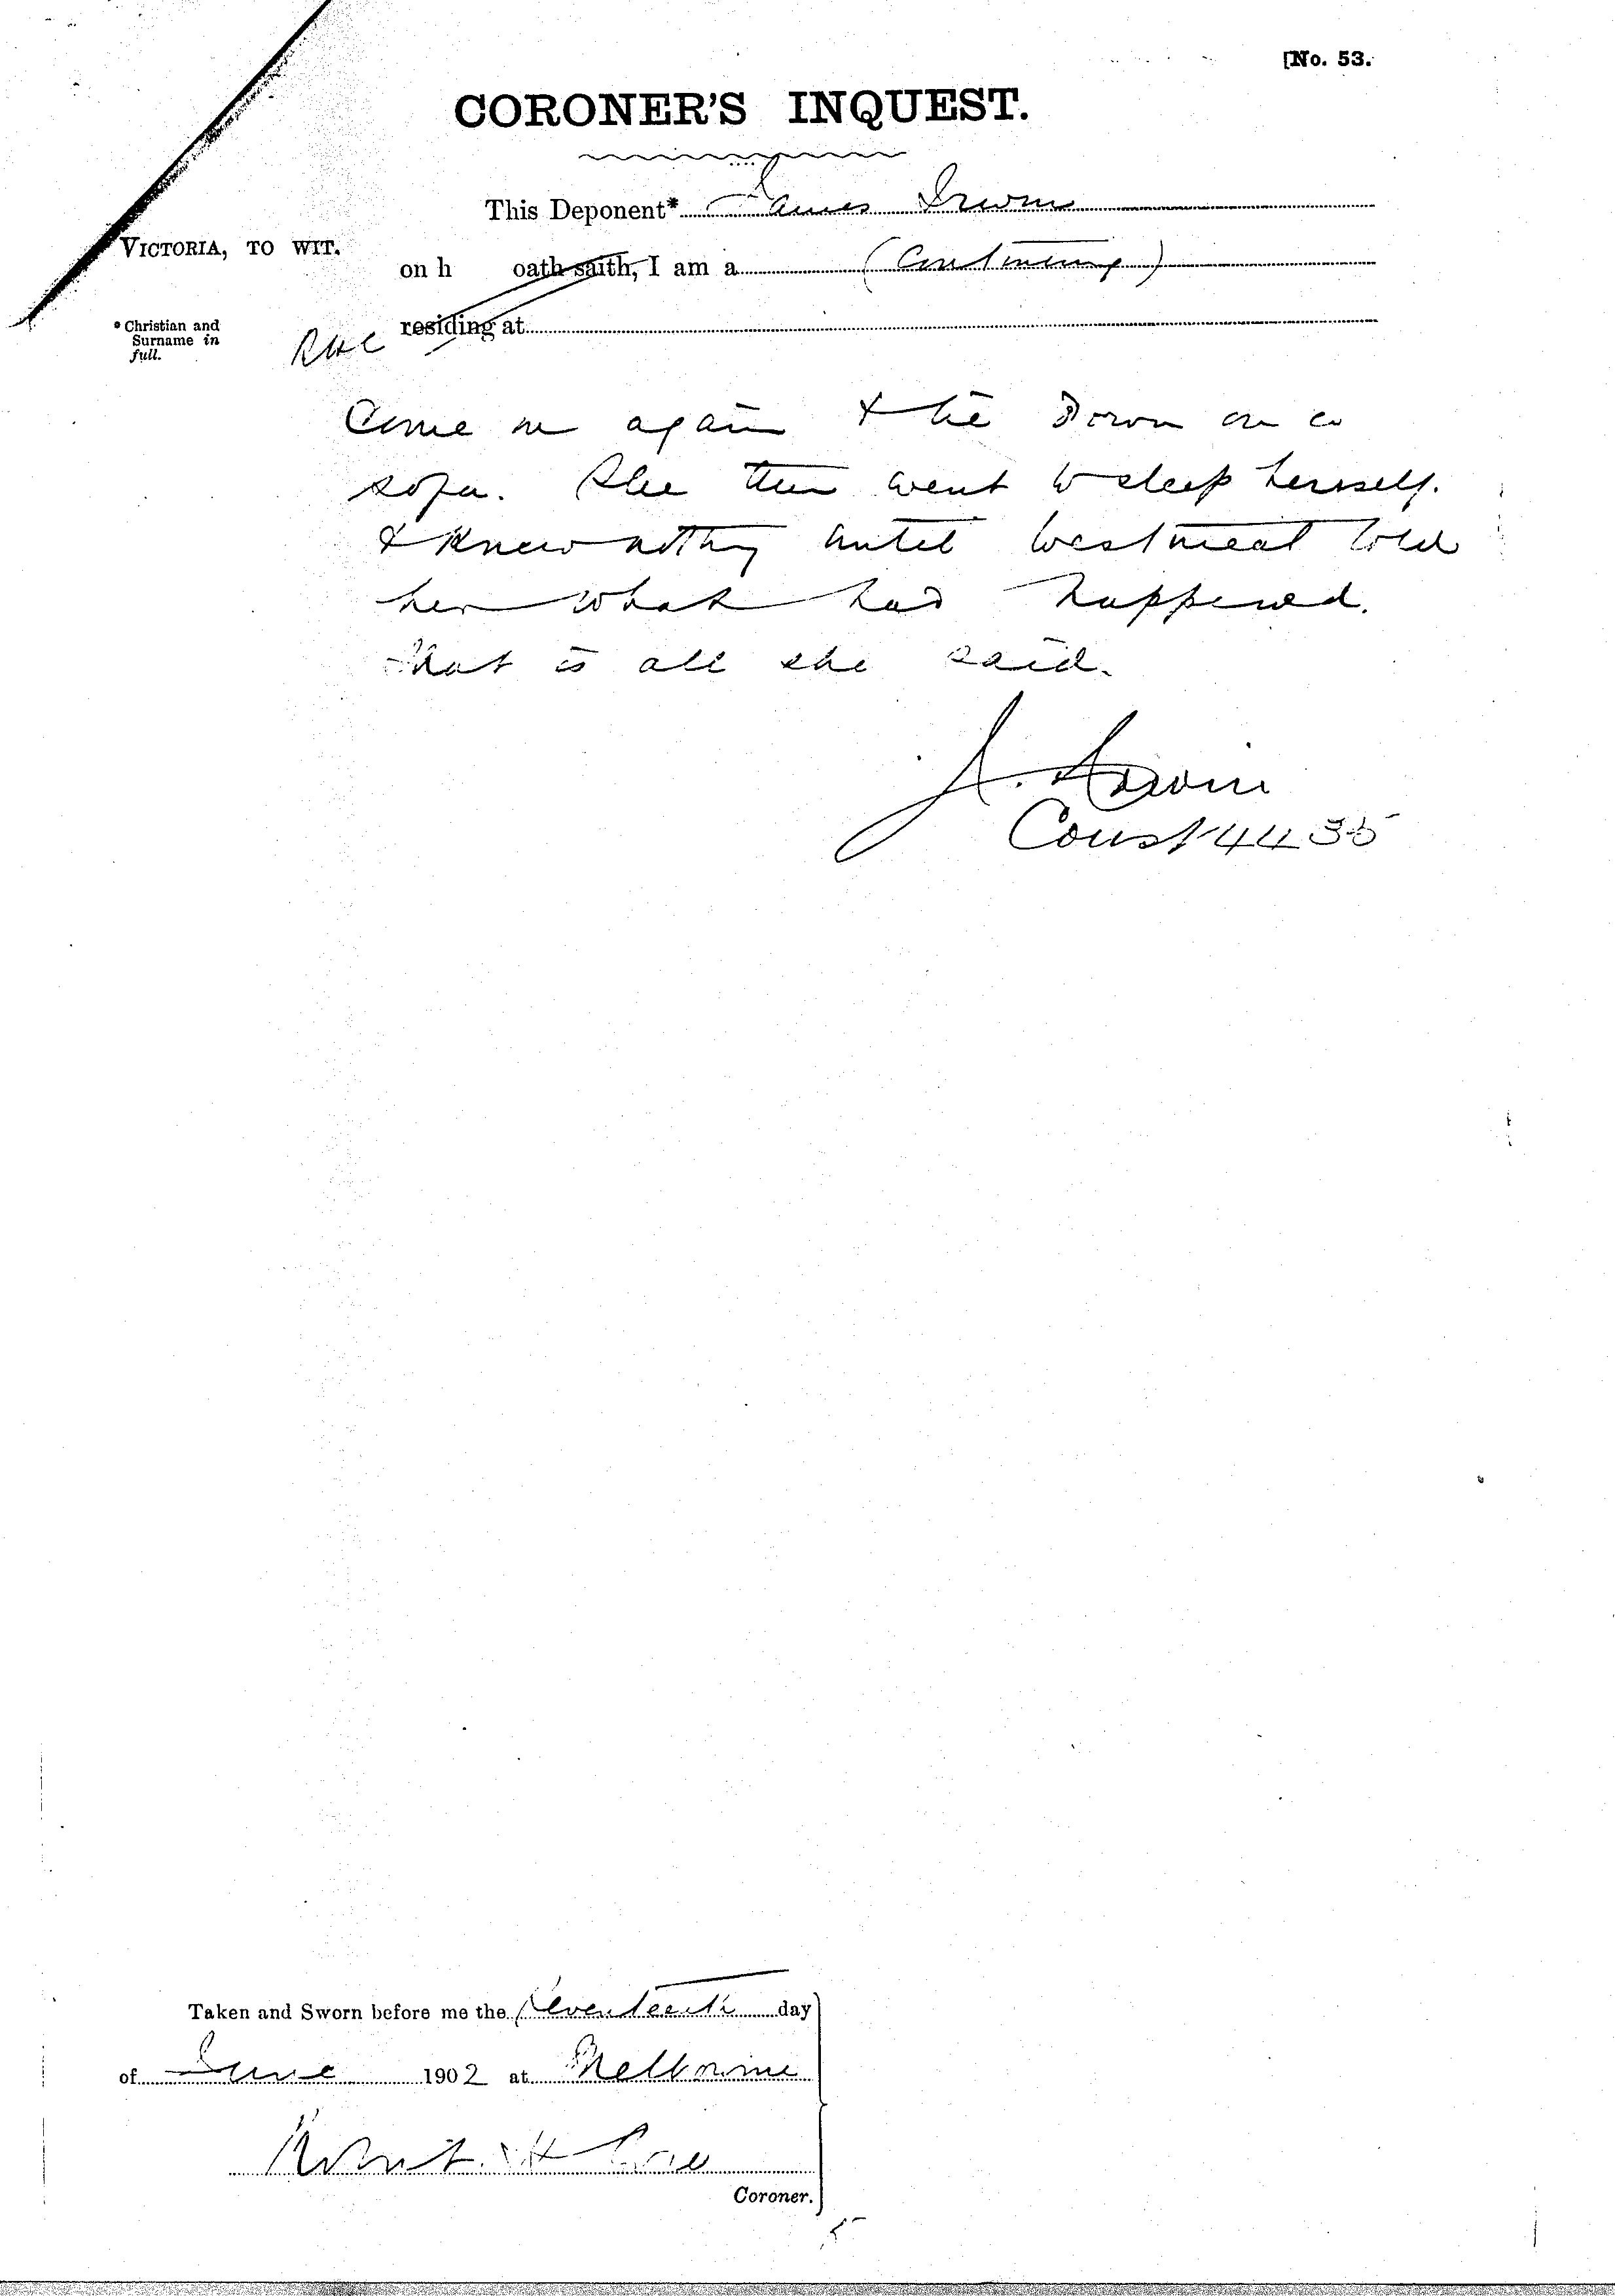 [No. 53.
CORONER'S INQUEST.
This Deponent* James Irwin
VICTORIA, TO WIT.
on h oath saith, I am a (Continuing)
residing at
* Christian and
Surname in
full.
Come in again & lie Down on a
sofa. She then went to sleep herself.
& Knew nothing until Westneat told
her what had happened.
That is all she said.
J. Irwin
Const 4435
Taken and Sworn before me the Seventeenth day
of June 1902 at Melbourne
Robert H Cole
Coroner.